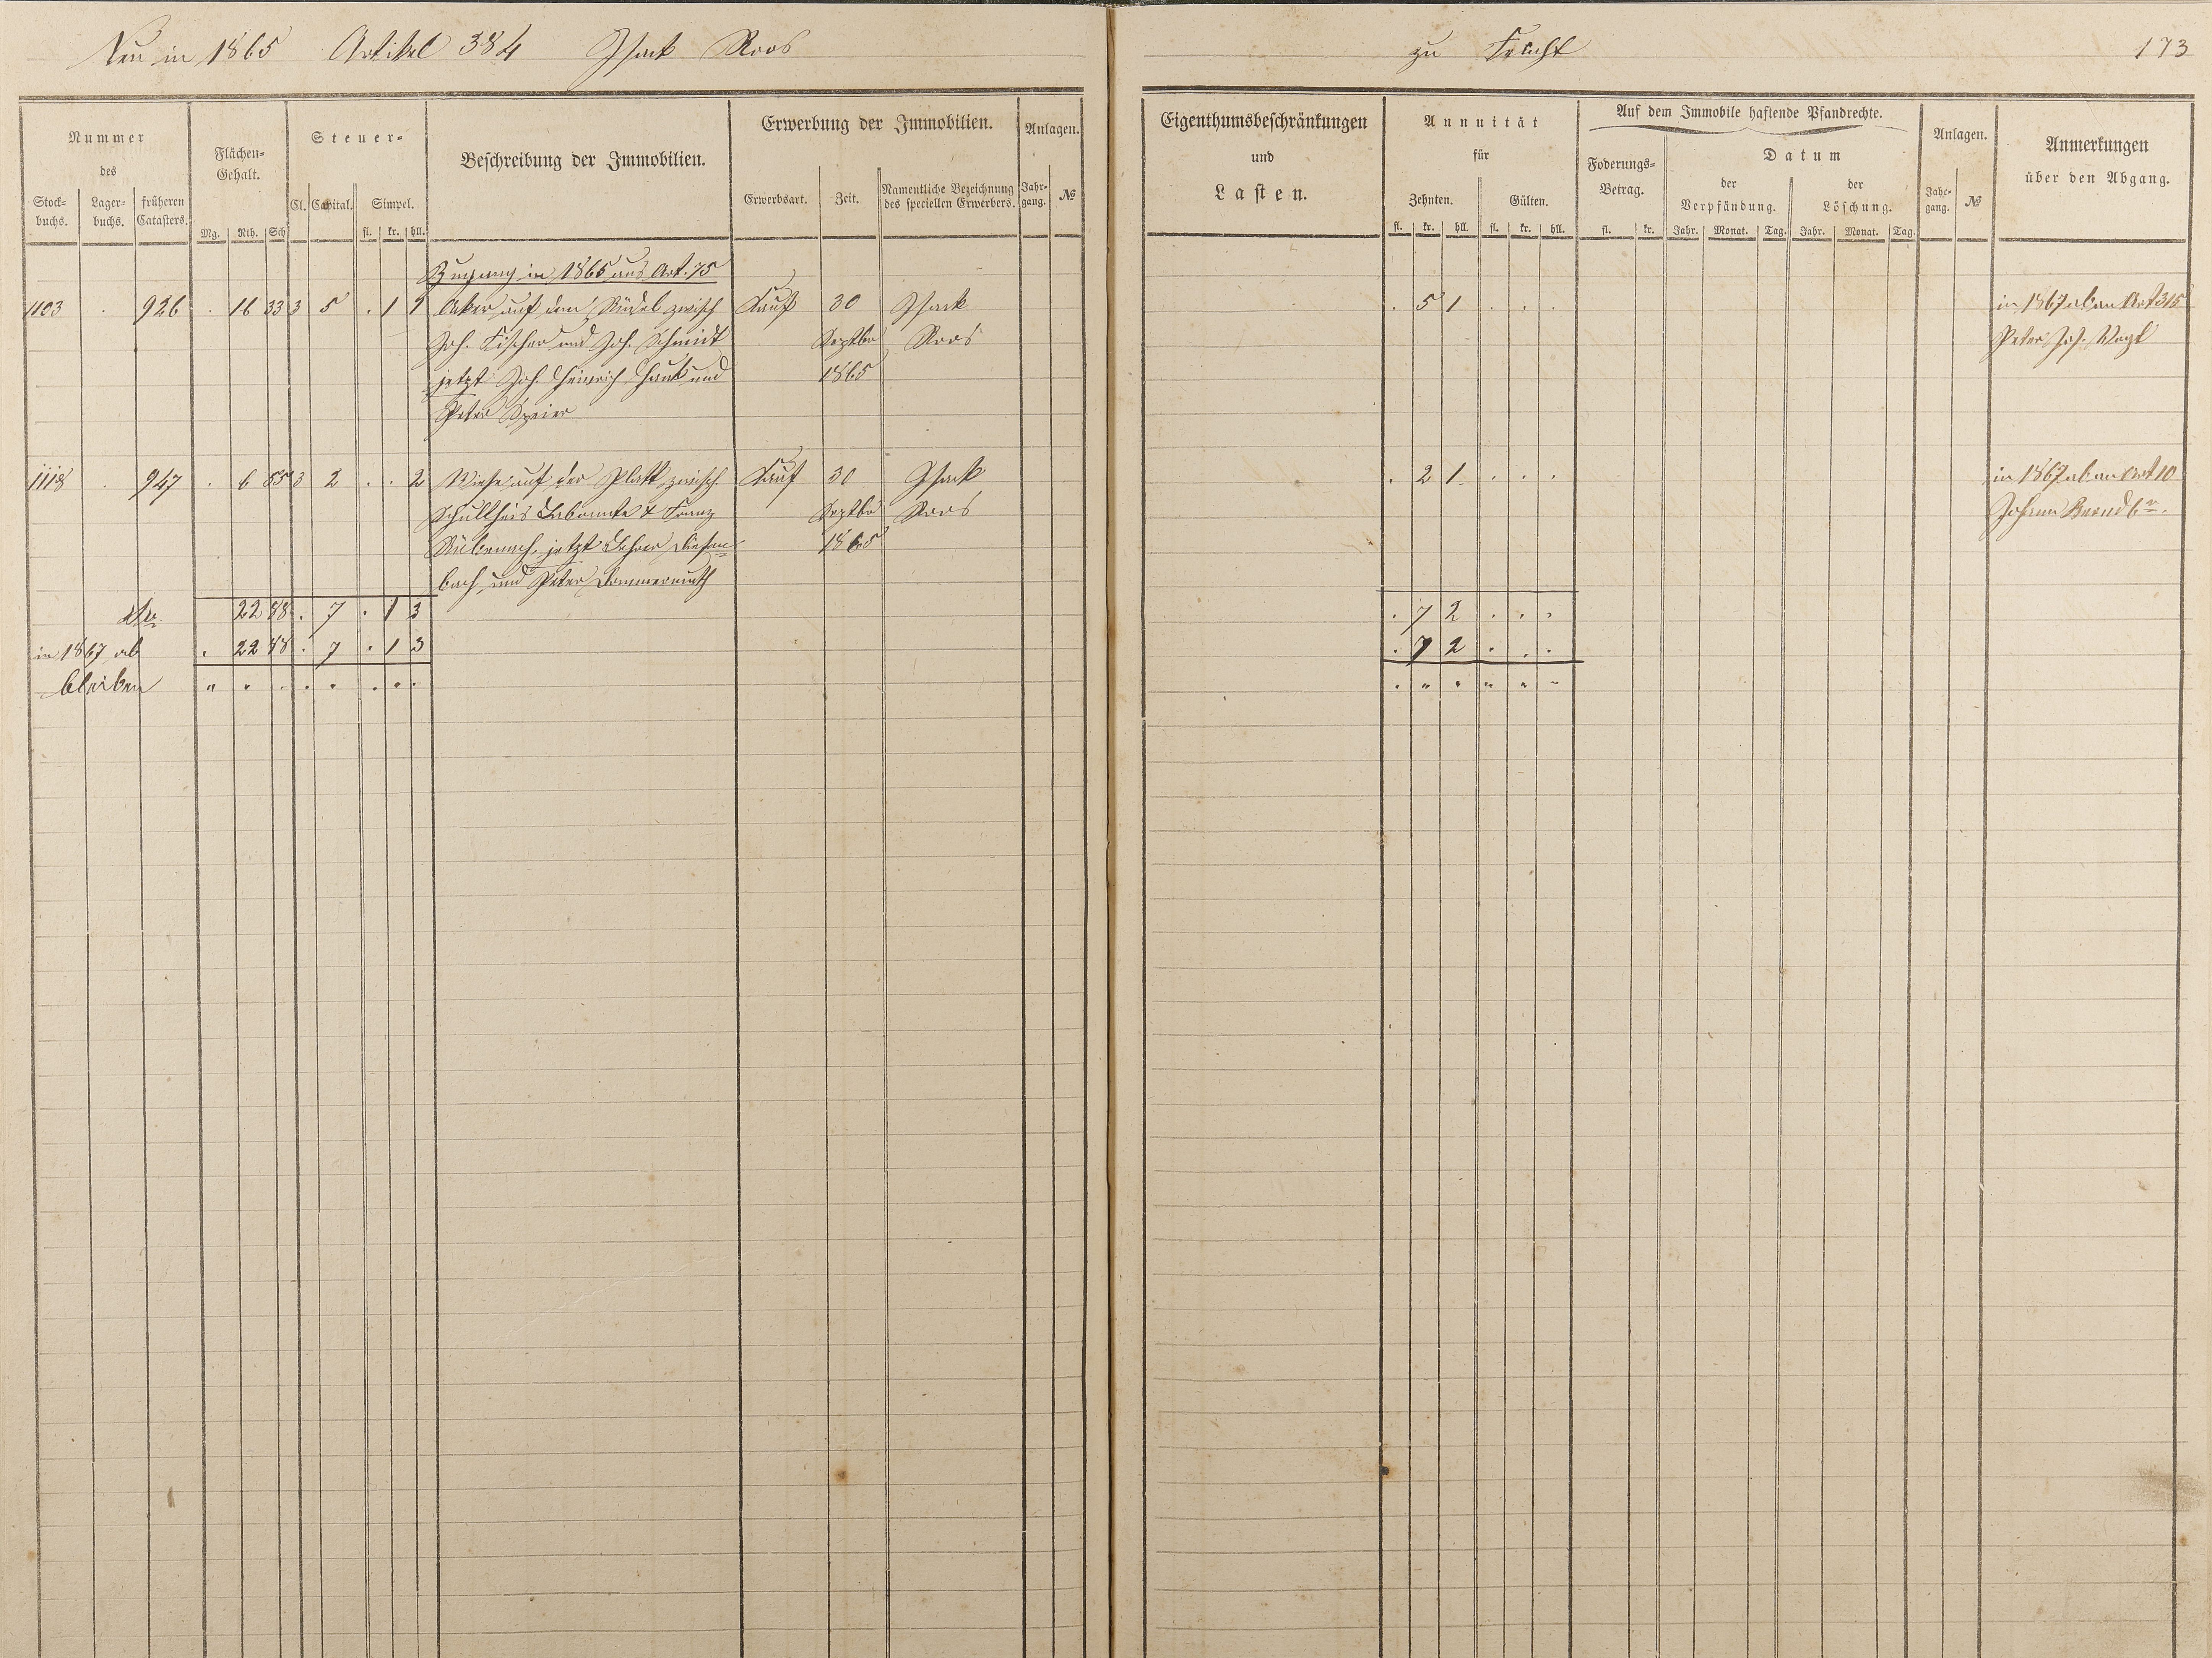 Neu in 1865 Artikel 384 Isack Roos
zu Frücht 173
Nummer
des
Stock-
buchs. Lager-
buchs. früheren
Catasters.
Flächen-
Gehalt.
Mg. Rth. Sch
Steuer-
Cl. Capital. Simpel.
fl. kr. hll.
Beschreibung der Immobilien.
Erwerbung der Immobilien.
Erwerbsart. Zeit. Namentliche Bezeichnung
des speciellen Erwerbers.
Anlagen.
Jahr-
gang. №
Eigenthumsbeschränkungen
und
Lasten.
Annuität
für
Zehnten. Gülten.
fl. kr. hll. fl. kr. hll.
Auf dem Immobile haftende Pfandrechte.
Foderungs-
Betrag.
fl. kr.
Datum
der
Verpfändung. der
Löschung.
Jahr. Monat. Tag. Jahr. Monat. Tag.
Anlagen.
Jahr-
gang. №
Anmerkungen
über den Abgang.
Zugang in 1865 aus Art. 75
1103 . 926 . 16 33 3 5 . 1 1 Aker auf dem zwisch Kauf 30 Isack . 5 1 . . . in 1867 ab an Art 315
Joh. Fischer und Joh. Schmidt Septbr Roos Peter Jos. Vogt
jetzt Joh. Heinrich Hauk und 1865
Peter Speier
1118 . 947 . 6 55 3 2 . . 2 Wiese auf der Platt zwisch Kauf 30 Isack . 2 1 . . . in 1867 ab an Art 10
Schultheis & Franz Septbr Roos Johann
jetzt Lehrer Diefen- 1865
bach und Peter Dommermuth
22 88 . 7 . 1 3 . 7 2 . . .
in 1867 ab . 22 88 . 7 . 1 3 . 7 2 . . .
bleiben " " . . " . " . . " " " " "